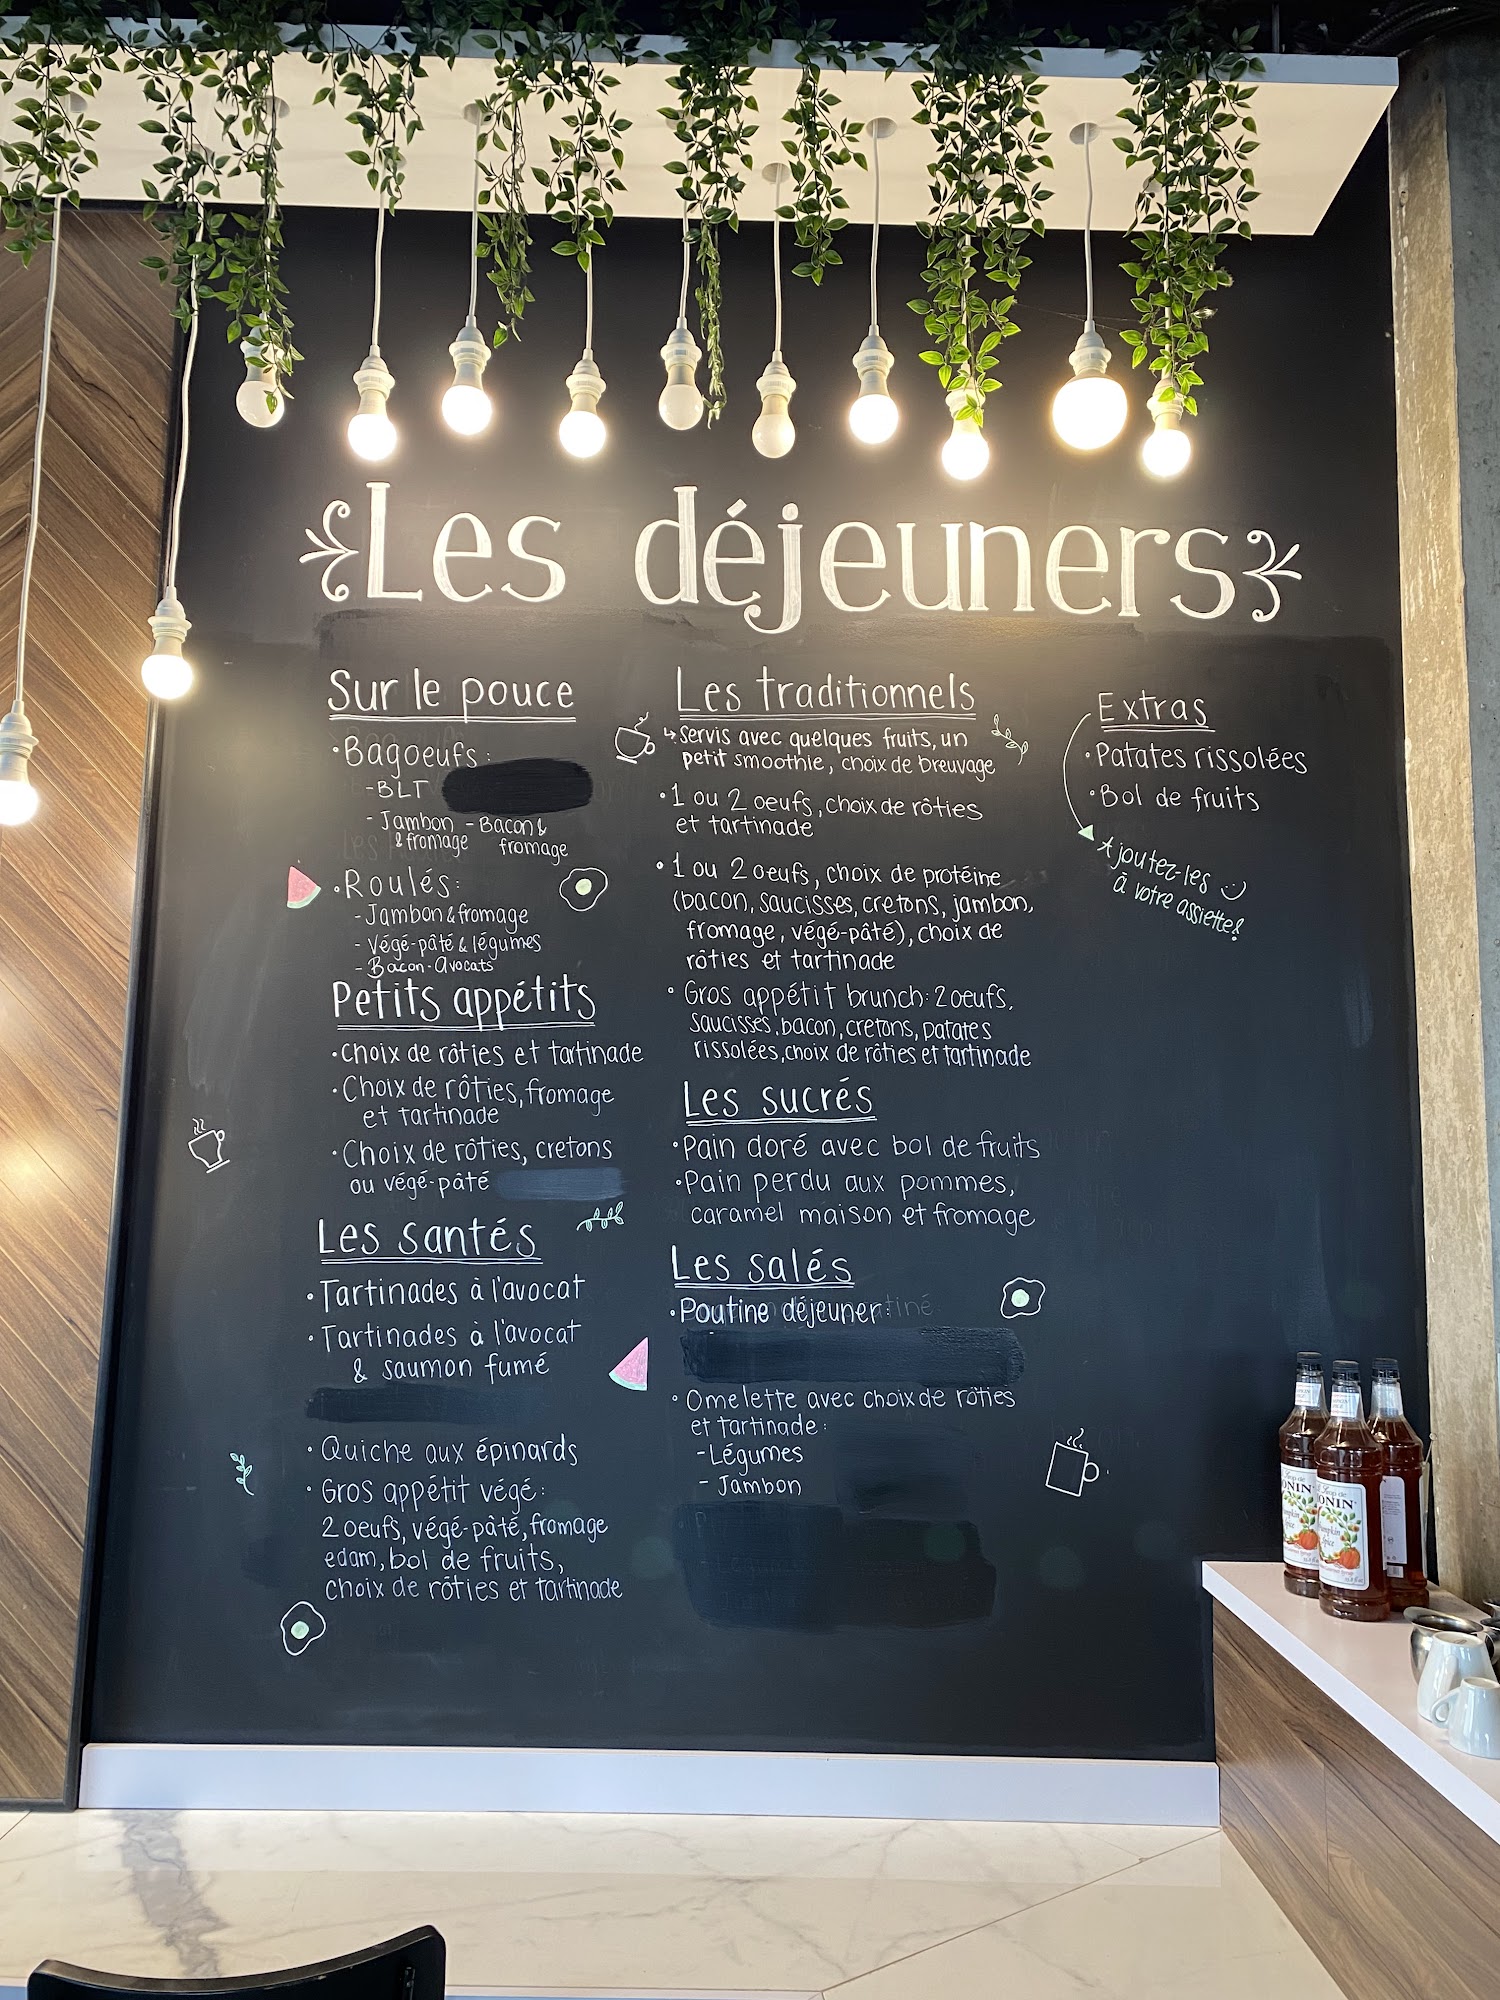 Les déjeuners
Sur le pouce
• Bagoeufs:
- BLT
- Jambon & fromage
- Bacon & fromage
• Roulés:
- Jambon & fromage
- Végé-pâté & légumes
- Bacon-Avocats
Petits appétits
• Choix de rôties et tartinade
• Choix de rôties, fromage
et tartinade
• Choix de rôties, cretons
ou végé-pâté
Les santés
• Tartinades à l'avocat
• Tartinades à l'avocat
& saumon fumé
• Quiche aux épinards
• Gros appétit végé:
2 oeufs, végé-pâté, fromage
edam, bol de fruits,
choix de rôties et tartinade
Les traditionnels
↳ Servis avec quelques fruits, un
petit smoothie, choix de breuvage
• 1 ou 2 oeufs, choix de rôties
et tartinade
• 1 ou 2 oeufs, choix de protéine
(bacon, saucisses, cretons, jambon,
fromage, végé-pâté), choix de
rôties et tartinade
• Gros appétit brunch: 2 oeufs,
saucisses, bacon, cretons, patates
rissolées, choix de rôties et tartinade
Les sucrés
• Pain doré avec bol de fruits
• Pain perdu aux pommes,
caramel maison et fromage
Les salés
• Poutine déjeuner:
• Omelette avec choix de rôties
et tartinade:
- Légumes
- Jambon
Extras
• Patates rissolées
• Bol de fruits
Ajoutez-les
à votre assiette!
ONIN
MONIN
Pumpkin
Spice